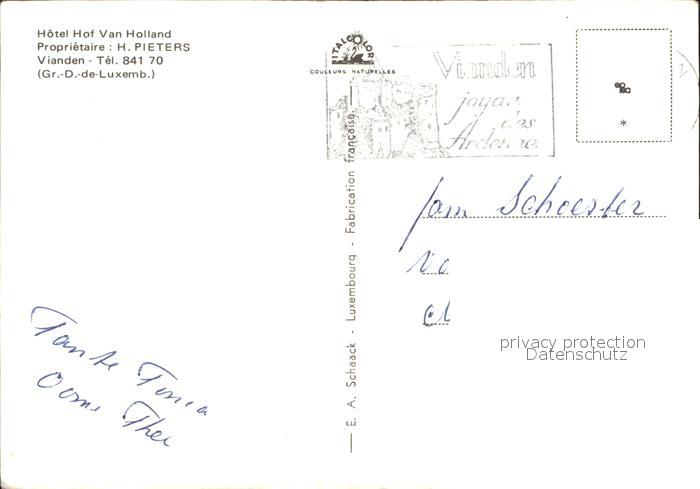 Hôtel Hof Van Holland
Propriètaire : H. PIETERS
Vianden - Tél. 841 70
(Gr.-D.-de-Luxemb.)
ITALCOLOR
COULEURS NATURELLES
Vianden
joyau
des
Ardennes
E. A. Schaack - Luxembourg - Fabrication française
*
fam Schoester
privacy protection
Datenschutz
Tante Tinia
Oome Theo